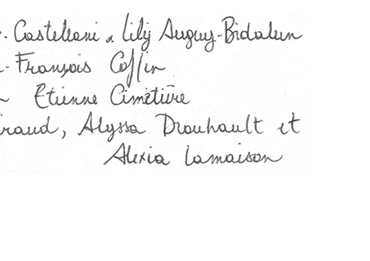 . Castellani & Lily Auguy-Bidaleun
-François Coffin
Etienne Cimetière
raud, Alyssa Drouhault et
Alexia Lamaison